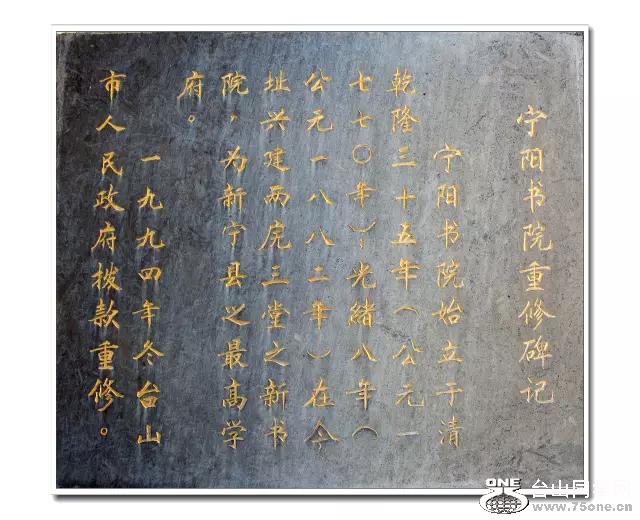 宁阳书院重修碑记
宁阳书院始立于清
乾隆三十五年(公元一
七七〇年),光緒八年(
公元一八八二年)在今
址兴建两庑三堂之新书
院,为新宁县之最高学
府。
一九九四年冬台山
市人民政府拨款重修。
ONE
台山同网
www.75one.cn